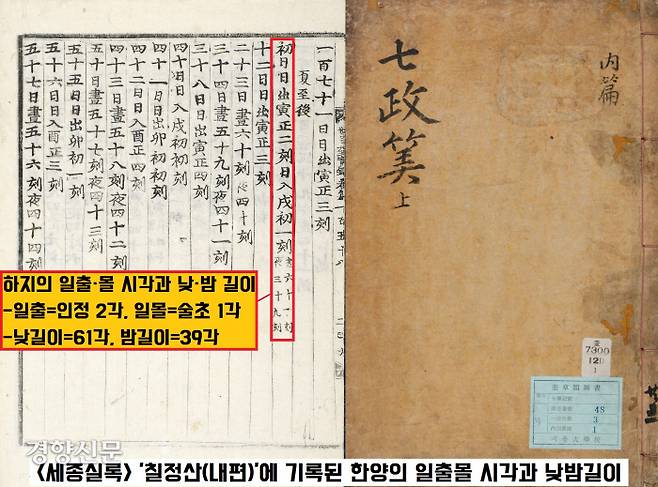 一百七十一日日出寅正三刻
夏至後
初日日出寅正二刻日入戌初一刻
晝六十一刻
夜三十九刻
十二日日出寅正三刻
二十三日晝六十刻夜四十刻
三十四日晝五十九刻夜四十一刻
三十八日日出寅正四刻
四十日日入戌初初刻
四十一日日出卯初初刻
四十二日日入酉正四刻
四十三日晝五十八刻夜四十二刻
五十日晝五十七刻夜四十三刻
五十五日日出卯初一刻
五十六日日入酉正三刻
五十七日晝五十六刻夜四十四刻
內篇
七政筭
上
하지의 일출·몰 시각과 낮·밤 길이
-일출=인정 2각, 일몰=술초 1각
-낮길이=61각, 밤길이=39각
奎
7300
120
1
奎章閣圖書
48
3
1
서울大學校
경향신문
<세종실록> '칠정산(내편)'에 기록된 한양의 일출몰 시각과 낮밤길이